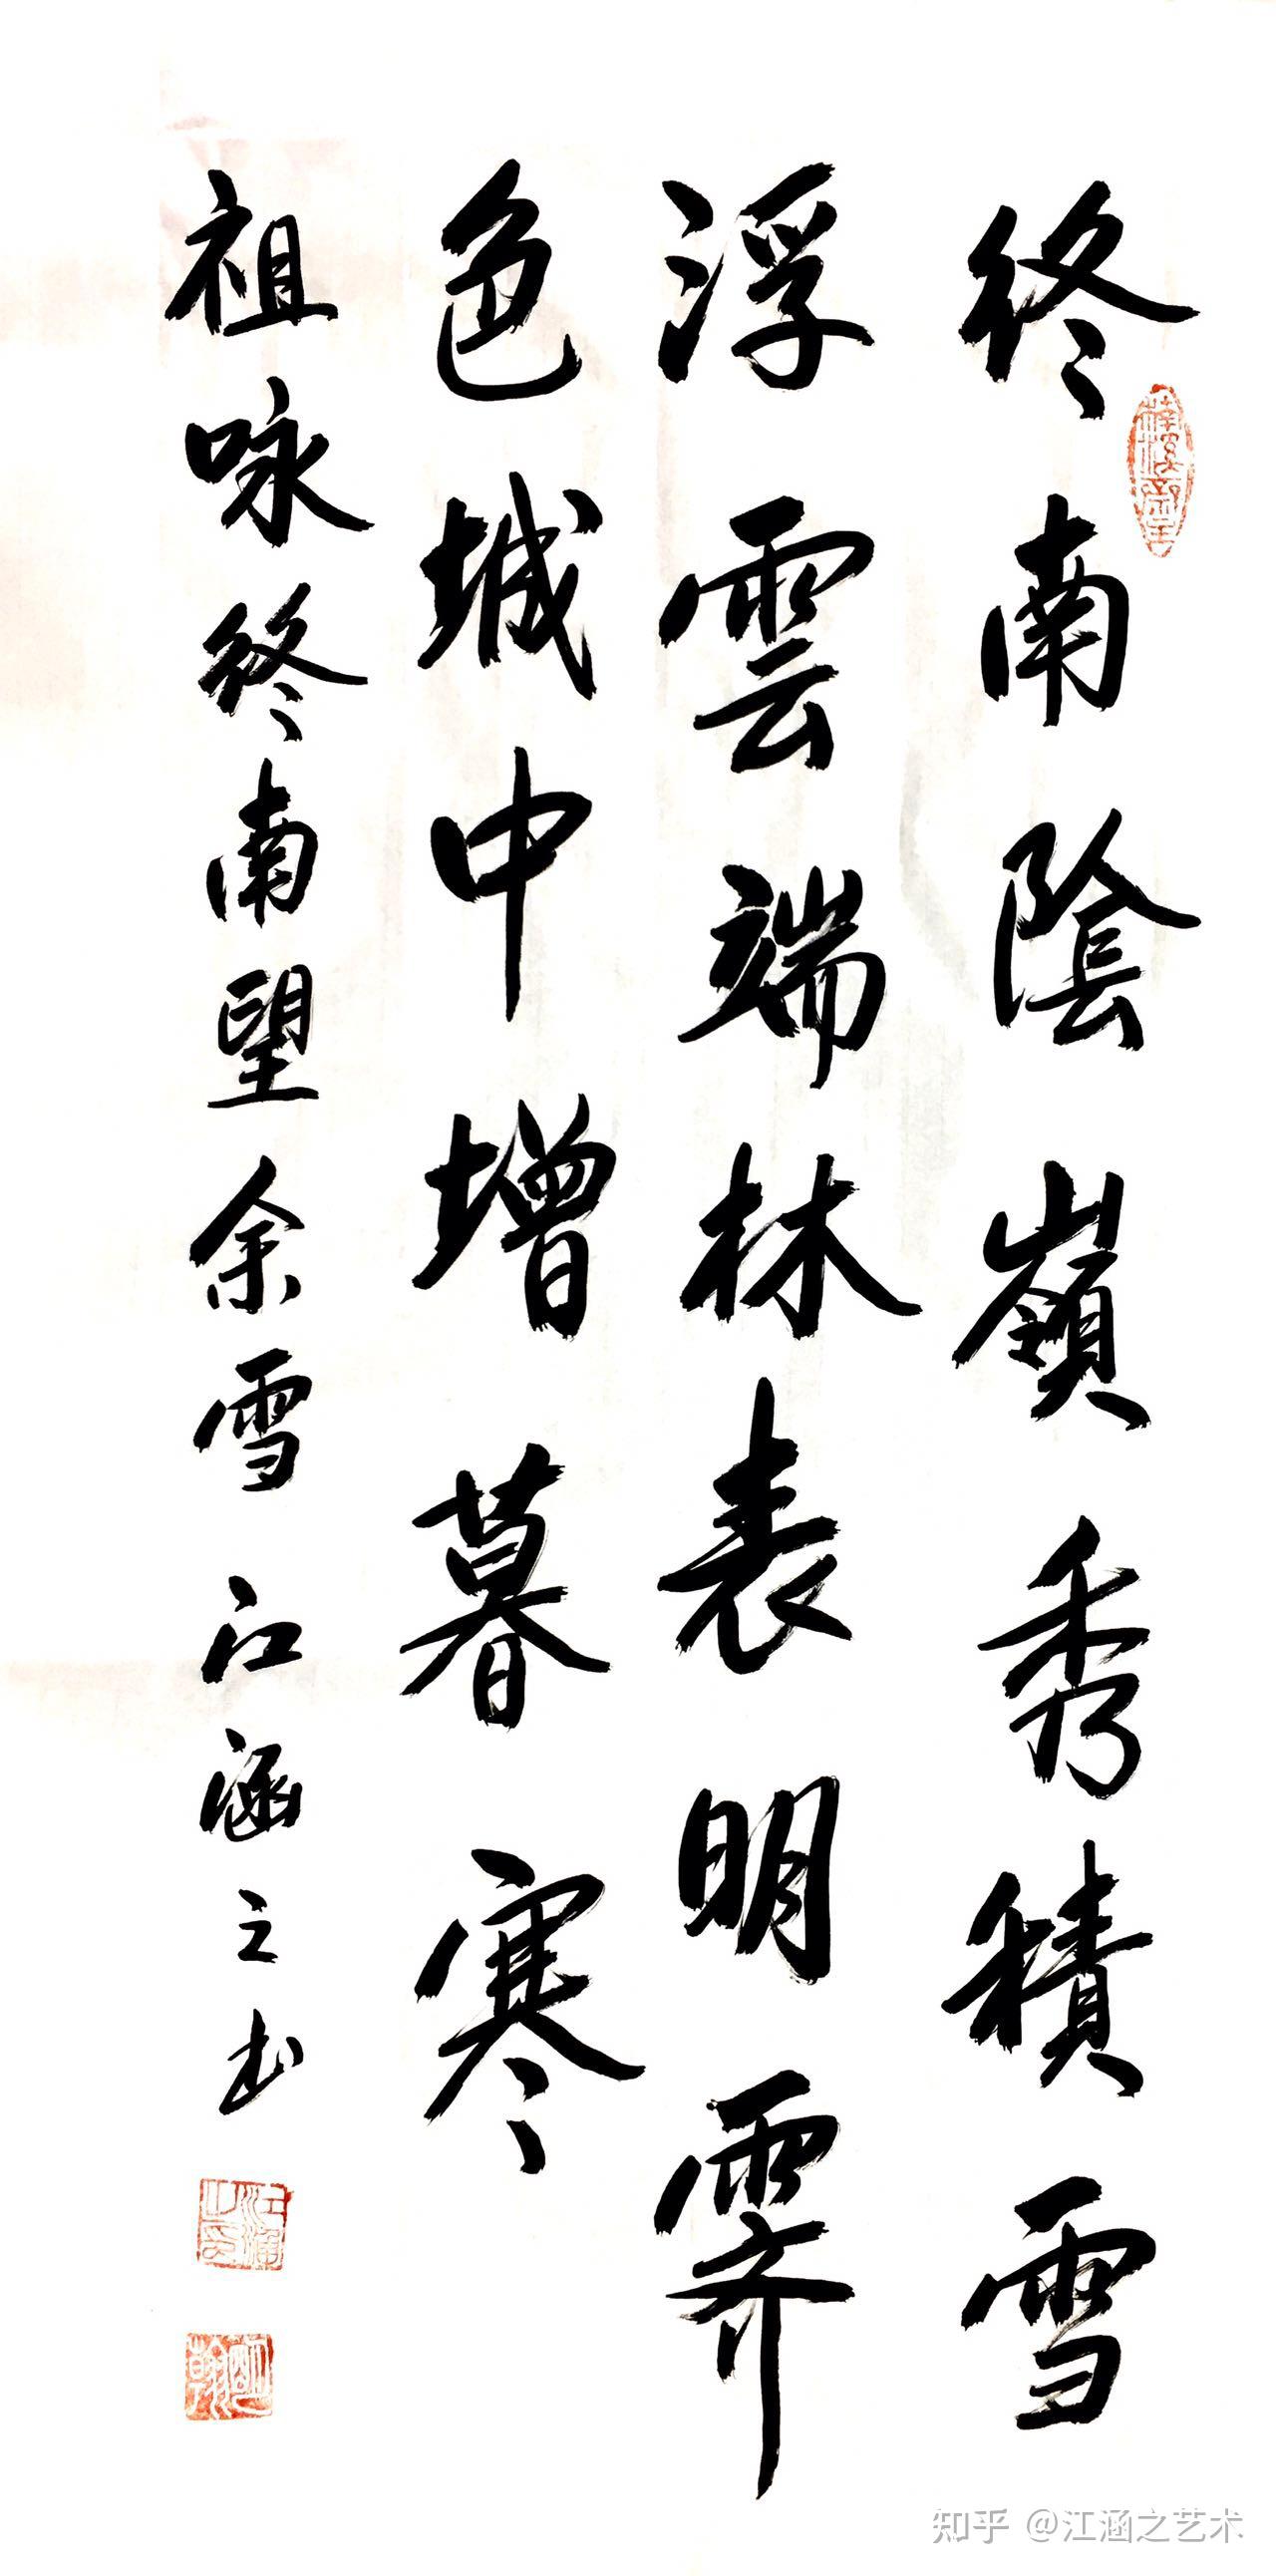 终南陰嶺秀積雪
浮雲端林表明霁
色城中增暮寒
祖咏终南望余雪 江涵之书
知乎 @江涵之艺术